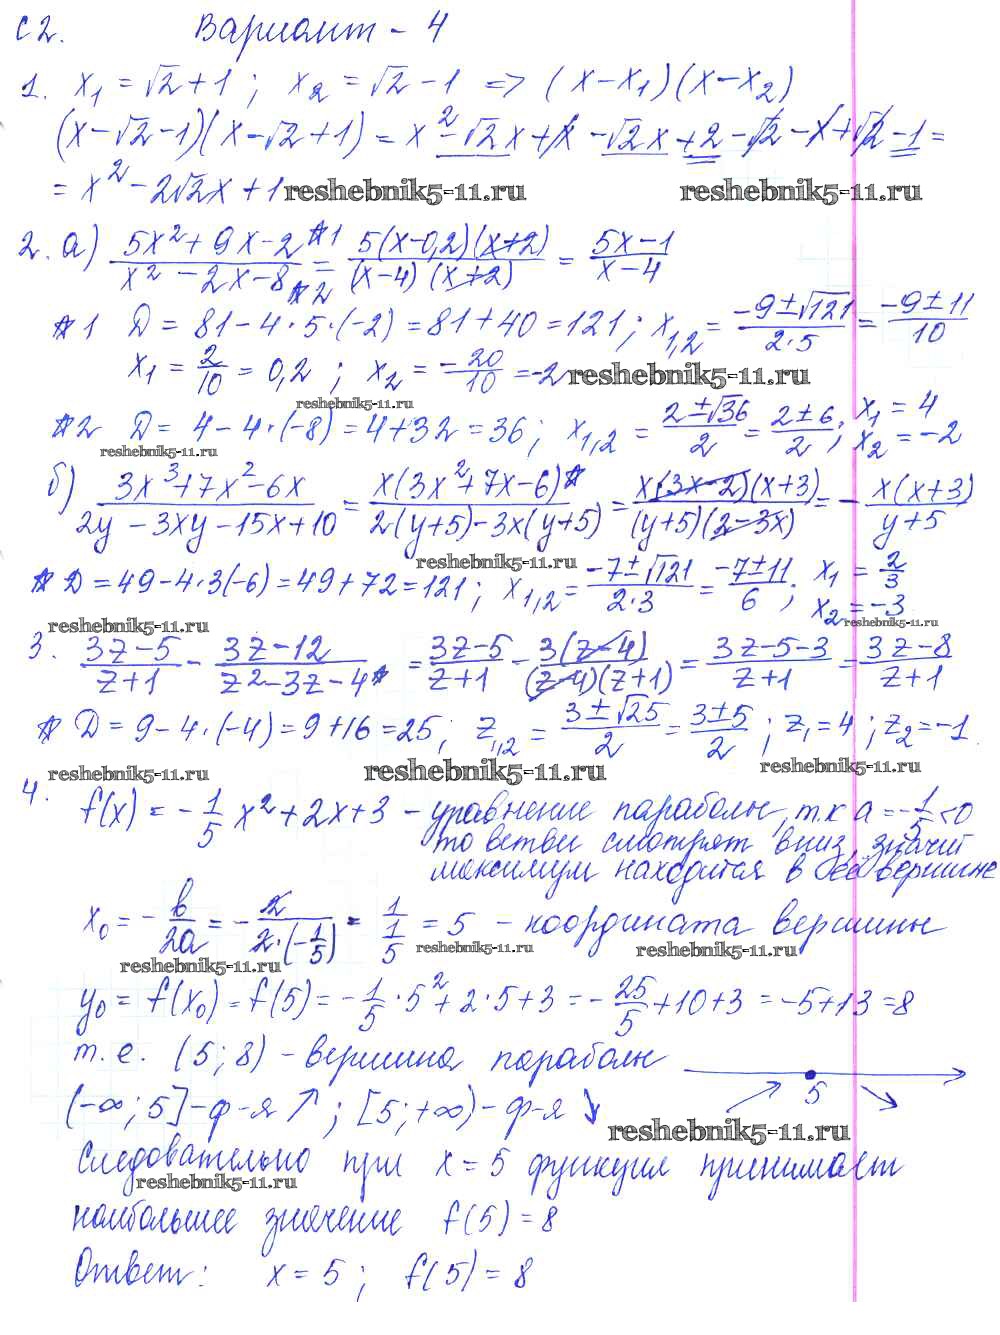 С2. Вариант - 4
1. x₁ = √2 + 1 ; x₂ = √2 - 1 => (x - x₁)(x - x₂)
(x - √2 - 1)(x - √2 + 1) = x² - √2x + x - √2x + 2 - √2 - x + √2 - 1 =
= x² - 2√2x + 1 reshebnik5-11.ru reshebnik5-11.ru
2. а) (5x² + 9x - 2 *1)/(x² - 2x - 8 *2) = 5(x - 0,2)(x + 2)/((x - 4)(x + 2)) = (5x - 1)/(x - 4)
*1 D = 81 - 4 · 5 · (-2) = 81 + 40 = 121 ; x₁,₂ = (-9 ± √121)/(2 · 5) = (-9 ± 11)/10
x₁ = 2/10 = 0,2 ; x₂ = -20/10 = -2 reshebnik5-11.ru
reshebnik5-11.ru
*2 D = 4 - 4 · (-8) = 4 + 32 = 36 ; x₁,₂ = (2 ± √36)/2 = (2 ± 6)/2 ; x₁ = 4 x₂ = -2
reshebnik5-11.ru
б) (3x³ + 7x² - 6x)/(2y - 3xy - 15x + 10) = x(3x² + 7x - 6)*/(2(y + 5) - 3x(y + 5)) = x(3x - 2)(x + 3)/((y + 5)(2 - 3x)) = - x(x + 3)/(y + 5)
reshebnik5-11.ru
* D = 49 - 4 · 3(-6) = 49 + 72 = 121 ; x₁,₂ = (-7 ± √121)/(2 · 3) = (-7 ± 11)/6 ; x₁ = 2/3 x₂ = -3
reshebnik5-11.ru reshebnik5-11.ru
3. (3z - 5)/(z + 1) - (3z - 12)/(z² - 3z - 4*) = (3z - 5)/(z + 1) - 3(z - 4)/((z - 4)(z + 1)) = (3z - 5 - 3)/(z + 1) = (3z - 8)/(z + 1)
* D = 9 - 4 · (-4) = 9 + 16 = 25 ; z₁,₂ = (3 ± √25)/2 = (3 ± 5)/2 ; z₁ = 4 ; z₂ = -1
reshebnik5-11.ru reshebnik5-11.ru reshebnik5-11.ru
4. f(x) = - 1/5 x² + 2x + 3 - уравнение параболы, т.к a = -1/5 < 0
то ветви смотрят вниз, значит
максимум находится в её вершине
x₀ = - b/2a = - 2/(2 · (-1/5)) = 1/(1/5) = 5 - координата вершины
reshebnik5-11.ru reshebnik5-11.ru reshebnik5-11.ru
y₀ = f(x₀) = f(5) = - 1/5 · 5² + 2 · 5 + 3 = - 25/5 + 10 + 3 = -5 + 13 = 8
т. е. (5 ; 8) - вершина параболы
5
(-∞ ; 5] - ф-я ↗ ; [5 ; +∞) - ф-я ↘
reshebnik5-11.ru
Следовательно при x = 5 функция принимает
reshebnik5-11.ru
наибольшее значение f(5) = 8
Ответ : x = 5 ; f(5) = 8